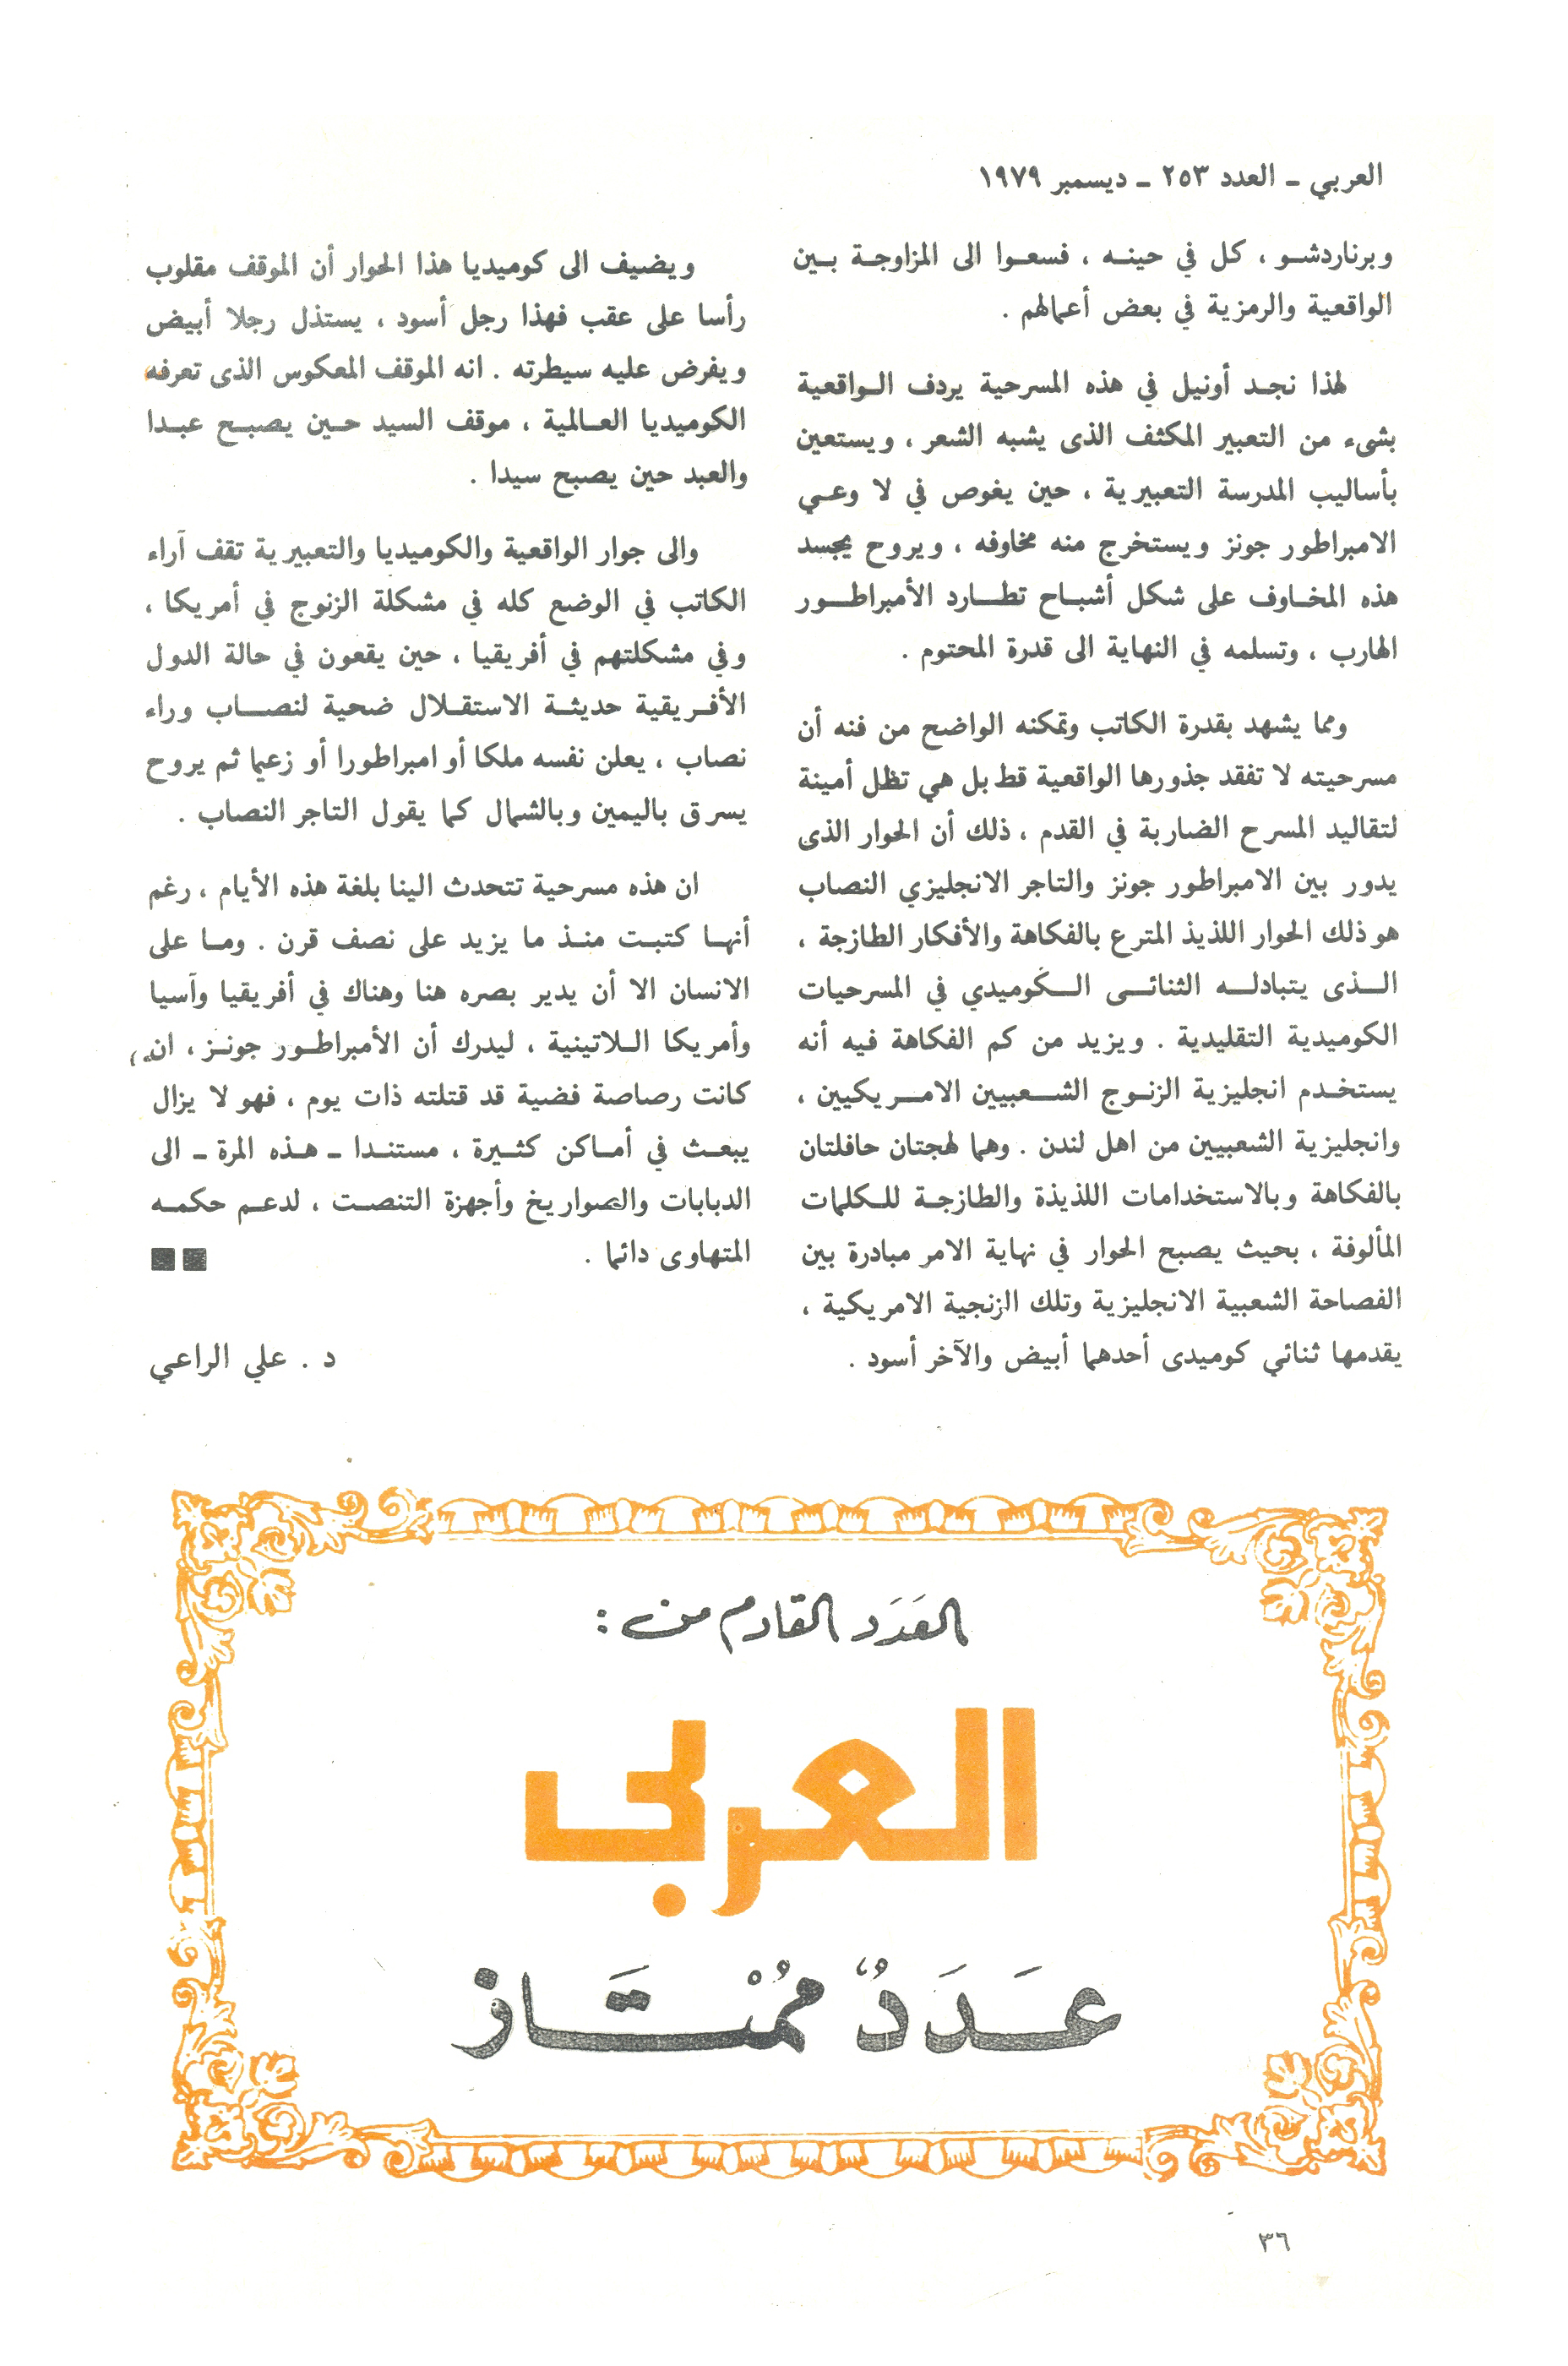 العربي ـ العدد ٢٥٣ ـ ديسمبر ١٩٧٩
وبرناردشو ، كل في حينه ، فسعوا الى المزاوجة بين
الواقعية والرمزية في بعض أعمالهم .
لهذا نجد أونيل في هذه المسرحية يردف الواقعية
بشىء من التعبير المكثف الذى يشبه الشعر ، ويستعين
بأساليب المدرسة التعبيرية ، حين يغوص في لا وعي
الامبراطور جونز ويستخرج منه مخاوفه ، ويروح يجسد
هذه المخاوف على شكل أشباح تطارد الأمبراطور
الهارب ، وتسلمه في النهاية الى قدرة المحتوم .
ومما يشهد بقدرة الكاتب وتمكنه الواضح من فنه أن
مسرحيته لا تفقد جذورها الواقعية قط بل هي تظل أمينة
لتقاليد المسرح الضاربة في القدم ، ذلك أن الحوار الذى
يدور بين الامبراطور جونز والتاجر الانجليزي النصاب
هو ذلك الحوار اللذيذ المترع بالفكاهة والأفكار الطازجة ،
الذى يتبادله الثنائى الكوميدي في المسرحيات
الكوميدية التقليدية . ويزيد من كم الفكاهة فيه أنه
يستخدم انجليزية الزنوج الشعبيين الامريكيين ،
وانجليزية الشعبيين من اهل لندن . وهما لهجتان حافلتان
بالفكاهة وبالاستخدامات اللذيذة والطازجة للكلمات
المألوفة ، بحيث يصبح الحوار في نهاية الامر مبادرة بين
الفصاحة الشعبية الانجليزية وتلك الزنجية الامريكية ،
يقدمها ثنائي كوميدى أحدهما أبيض والآخر أسود .
ويضيف الى كوميديا هذا الحوار أن الموقف مقلوب
رأسا على عقب فهذا رجل أسود ، يستذل رجلا أبيض
ويفرض عليه سيطرته . انه الموقف المعكوس الذى تعرفه
الكوميديا العالمية ، موقف السيد حين يصبح عبدا
والعبد حين يصبح سيدا .
والى جوار الواقعية والكوميديا والتعبيرية تقف آراء
الكاتب في الوضع كله في مشكلة الزنوج في أمريكا ،
وفي مشكلتهم في أفريقيا ، حين يقعون في حالة الدول
الأفريقية حديثة الاستقلال ضحية لنصاب وراء
نصاب ، يعلن نفسه ملكا أو امبراطورا أو زعيما ثم يروح
يسرق باليمين وبالشمال كما يقول التاجر النصاب .
ان هذه مسرحية تتحدث الينا بلغة هذه الأيام ، رغم
أنها كتبت منذ ما يزيد على نصف قرن . وما على
الانسان الا أن يدير بصره هنا وهناك في أفريقيا وآسيا
وأمريكا اللاتينية ، ليدرك أن الأمبراطور جونز ، ان
كانت رصاصة فضية قد قتلته ذات يوم ، فهو لا يزال
يبعث في أماكن كثيرة ، مستندا ـ هذه المرة ـ الى
الدبابات والصواريخ وأجهزة التنصت ، لدعم حكمه
المتهاوى دائما .
د . علي الراعي
العَدَد القادم من :
العربى
عَدَدٌ مُمْتَاز
٣٦